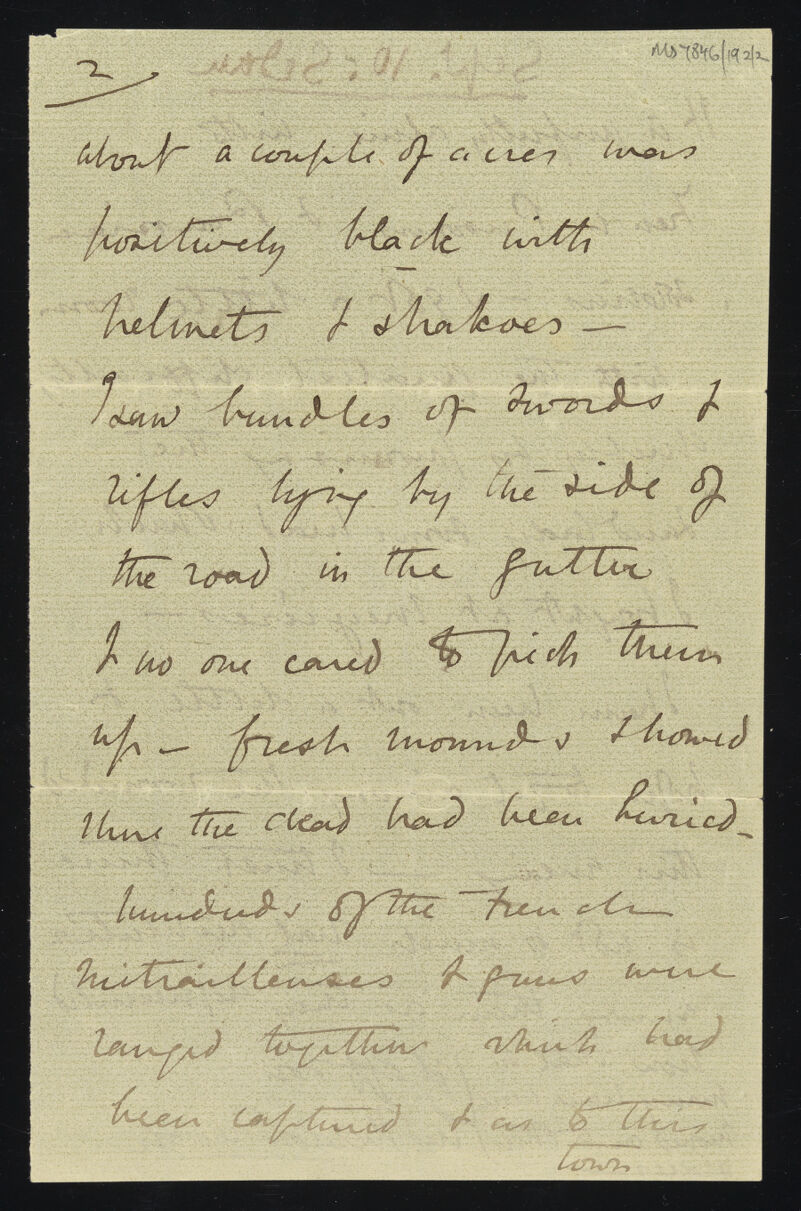 2
MS 7846/192/2
about a couple of acres was
positively black with
helmets & shakoes —
I saw bundles of swords &
rifles lying by the side of
the road in the gutter
& no one cared to pick them
up — fresh mounds showed
where the dead had been buried —
hundreds of the French
mitrailleuses & guns were
ranged together which had
been captured & as to this
town